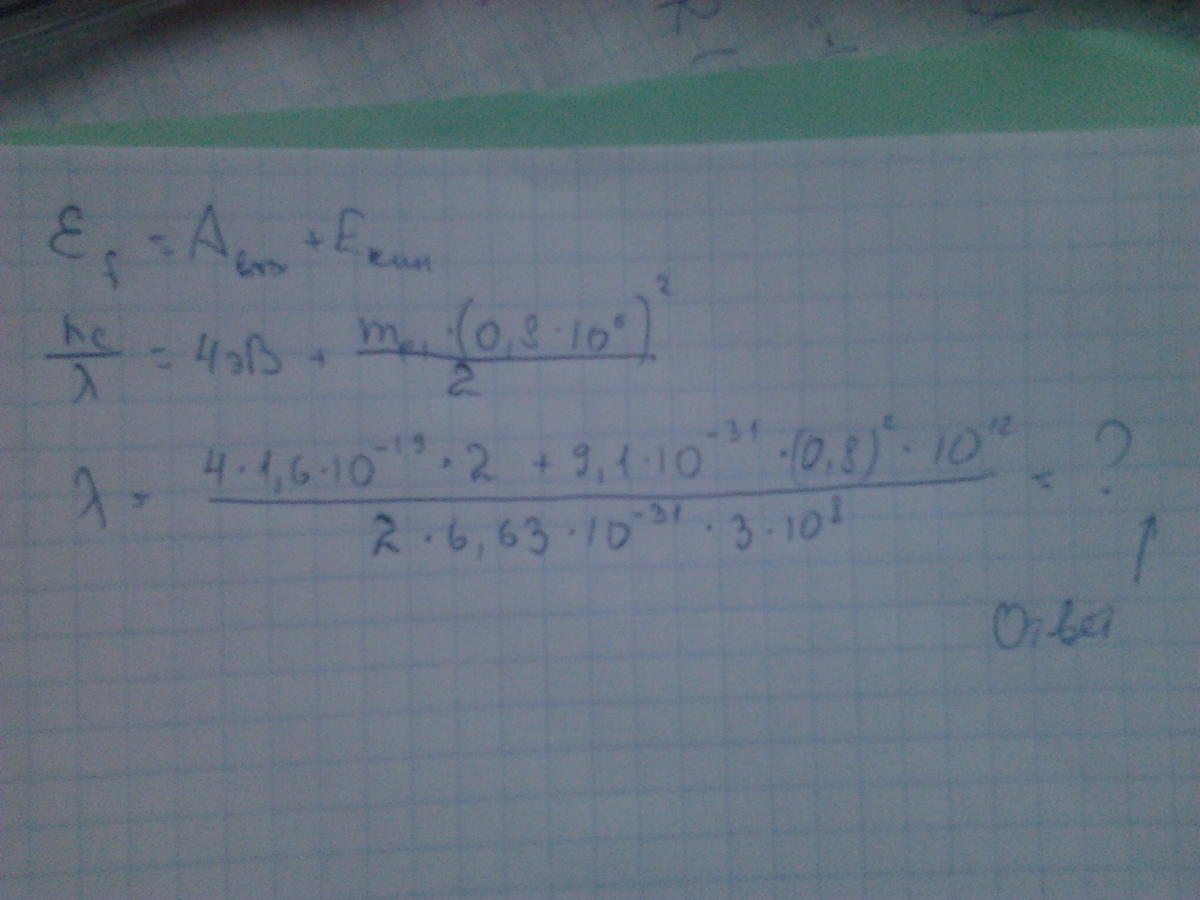 ε_f = A_вых + E_кин
hc/λ = 4эВ + m_e·(0,8·10⁶)²/2
λ = (4·1,6·10⁻¹⁹·2 + 9,1·10⁻³¹·(0,8)²·10¹²)/(2·6,63·10⁻³¹·3·10⁸) = ?
Ответ